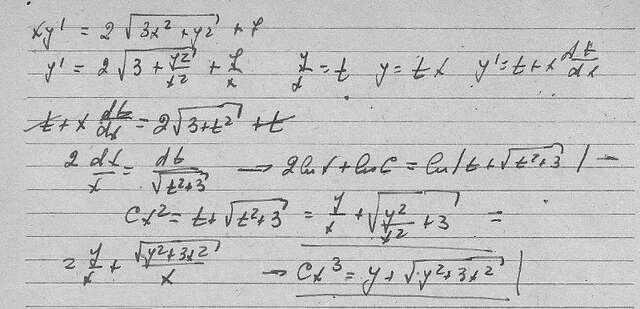 xy' = 2√(3x² + y²) + y
y' = 2√(3 + y²/x²) + y/x    y/x = t    y = tx    y' = t + x dt/dx
t + x dt/dx = 2√(3+t²) + t
2 dx/x = dt/√(t²+3) → 2lnx + lnC = ln|t + √(t²+3)| –
Cx² = t + √(t²+3) = y/x + √(y²/x² + 3) =
= y/x + √(y²+3x²)/x → Cx³ = y + √(y²+3x²) |